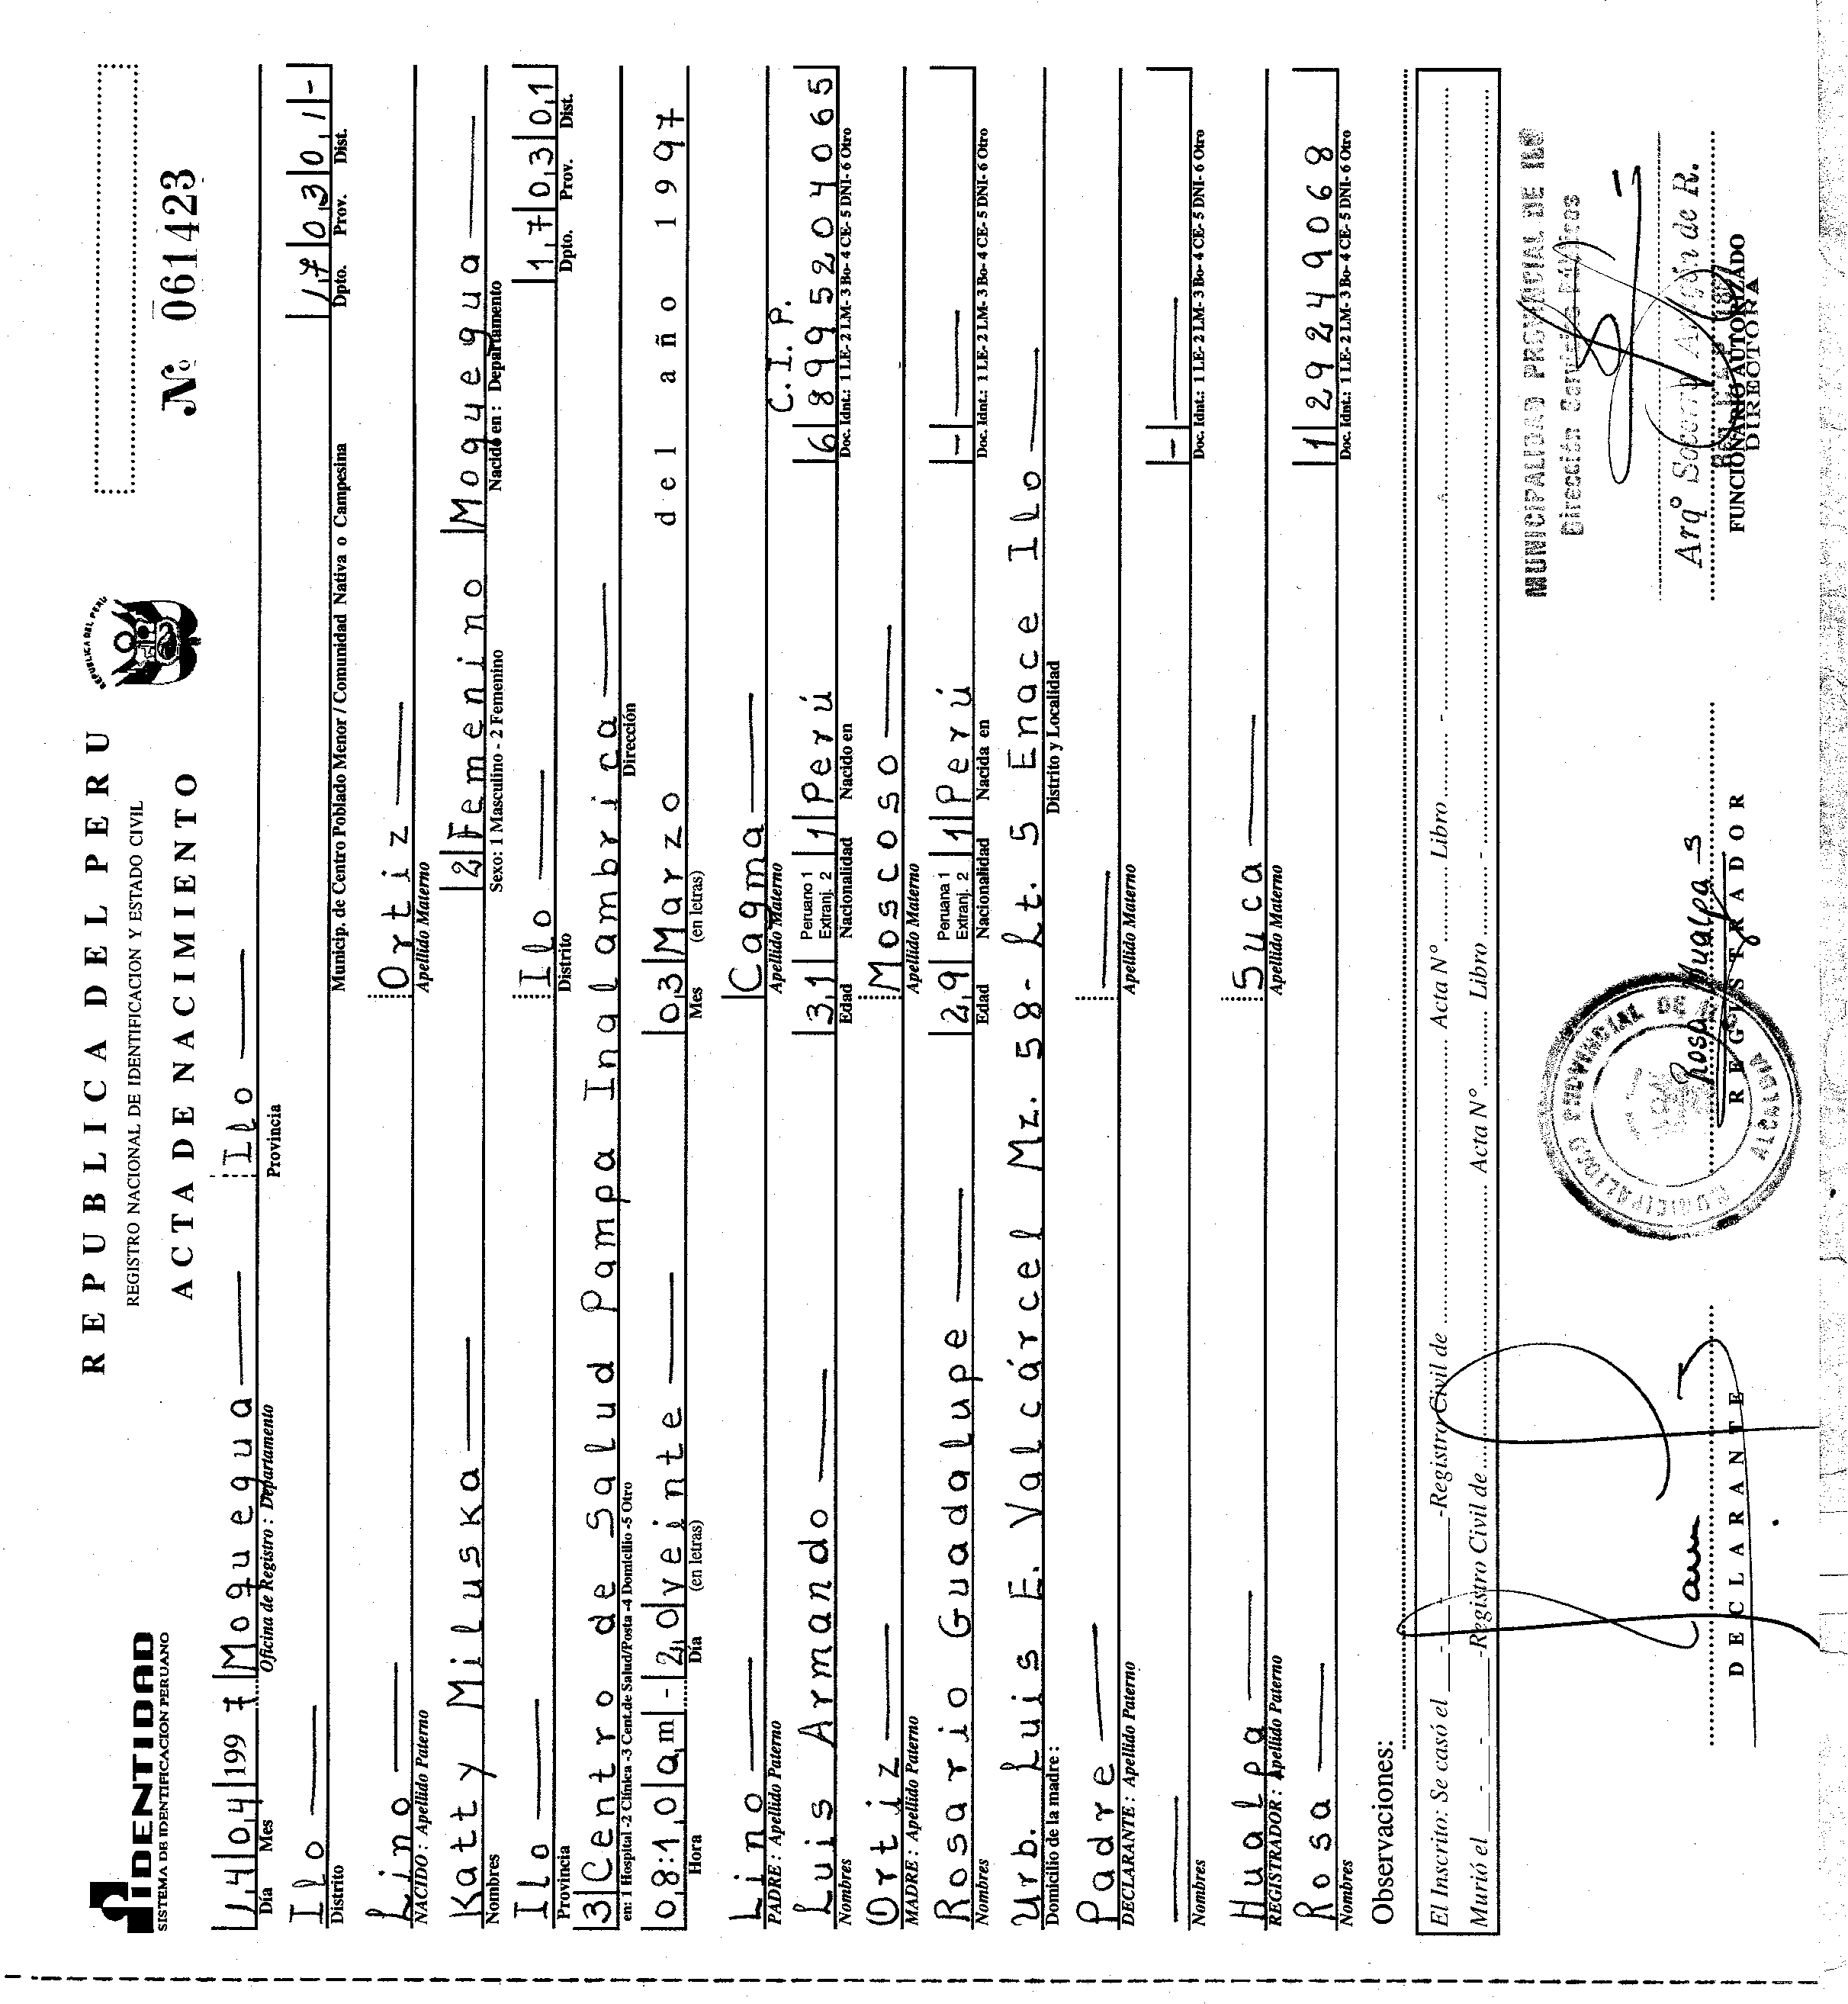 IDENTIDAD
SISTEMA DE IDENTIFICACION PERUANO
REPUBLICA DEL PERU
REGISTRO NACIONAL DE IDENTIFICACION Y ESTADO CIVIL
ACTA DE NACIMIENTO
REPUBLICA DEL PERU
Nº 061423
14 04 1997 Moquegua Ilo
Día Mes Oficina de Registro : Departamento Provincia
Ilo 17 03 01 -
Distrito Municip. de Centro Poblado Menor / Comunidad Nativa o Campesina Dpto. Prov. Dist.
Lino Ortiz
NACIDO : Apellido Paterno Apellido Materno
Katty Miluska 2 Femenino Moquegua
Nombres Sexo: 1 Masculino - 2 Femenino Nacido en : Departamento
Ilo Ilo 17 03 01
Provincia Distrito Dpto. Prov. Dist.
3 Centro de Salud Pampa Inalambrica
en: 1 Hospital -2 Clínica -3 Cent.de Salud/Posta -4 Domicilio -5 Otro Dirección
08:10 am - 20 veinte 03 Marzo del año 1997
Hora Día (en letras) Mes (en letras)
Lino Cagma C.I.P.
PADRE : Apellido Paterno Apellido Materno
Luis Armando 31 Peruano 1 Extranj. 2 1 Perú 6 8995204065
Nombres Edad Nacionalidad Nacido en Doc. Idnt.: 1 LE- 2 LM- 3 Bo- 4 CE- 5 DNI- 6 Otro
Ortiz Moscoso
MADRE : Apellido Paterno Apellido Materno
Rosario Guadalupe 29 Peruana 1 Extranj. 2 1 Perú -
Nombres Edad Nacionalidad Nacida en Doc. Idnt.: 1 LE- 2 LM- 3 Bo- 4 CE- 5 DNI- 6 Otro
Urb. Luis E. Valcárcel Mz. 58- Lt. 5 Enace Ilo
Domicilio de la madre : Distrito y Localidad
Padre
DECLARANTE : Apellido Paterno Apellido Materno
-
Nombres Doc. Idnt.: 1 LE- 2 LM- 3 Bo- 4 CE- 5 DNI- 6 Otro
Hualpa Suca
REGISTRADOR : Apellido Paterno Apellido Materno
Rosa 1 29249068
Nombres Doc. Idnt.: 1 LE- 2 LM- 3 Bo- 4 CE- 5 DNI- 6 Otro
Observaciones:
El Inscrito: Se casó el - - -Registro Civil de Acta Nº Libro -
Murió el - - -Registro Civil de Acta Nº Libro -
MUNICIPALIDAD PROVINCIAL DE ILO
Dirección Servicios Públicos
MUNICIPALIDAD PROVINCIAL DE
ALCALDIA
Rosa Hualpa S
Arqº Socorro de R.
DECLARANTE REGISTRADOR FUNCIONARIO AUTORIZADO
DIRECTORA